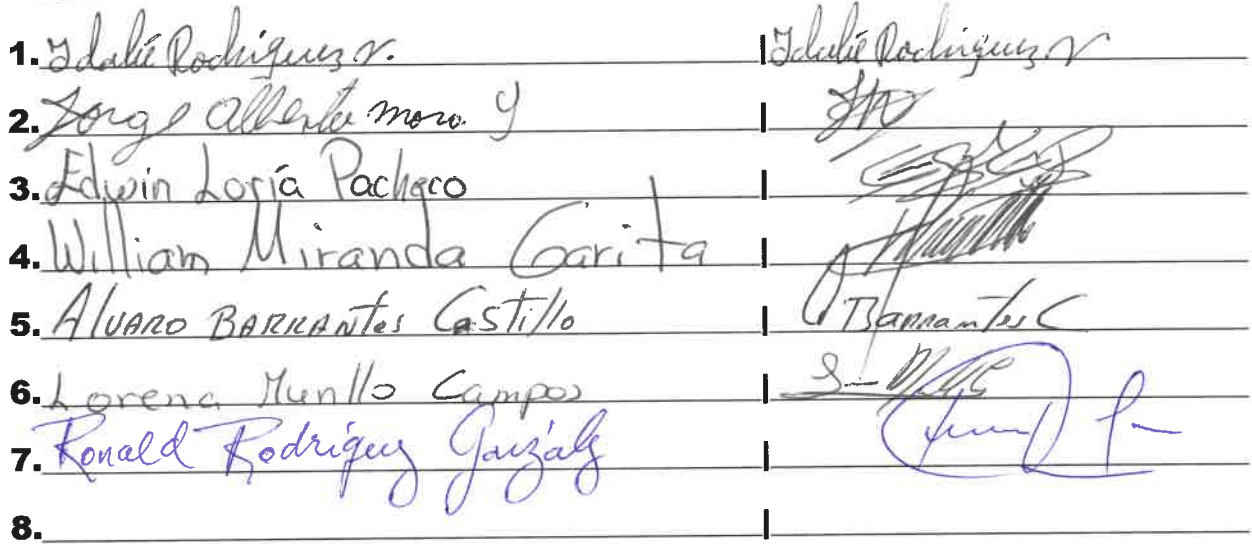 1. Idalié Rodríguez V. | Idalié Rodríguez V
2. Jorge Alberto mora |
3. Edwin Loría Pacheco |
4. William Miranda Garita |
5. Alvaro BARRANTES Castillo | Barrantes C
6. Lorena Murillo Campos |
7. Ronald Rodríguez González |
8. |